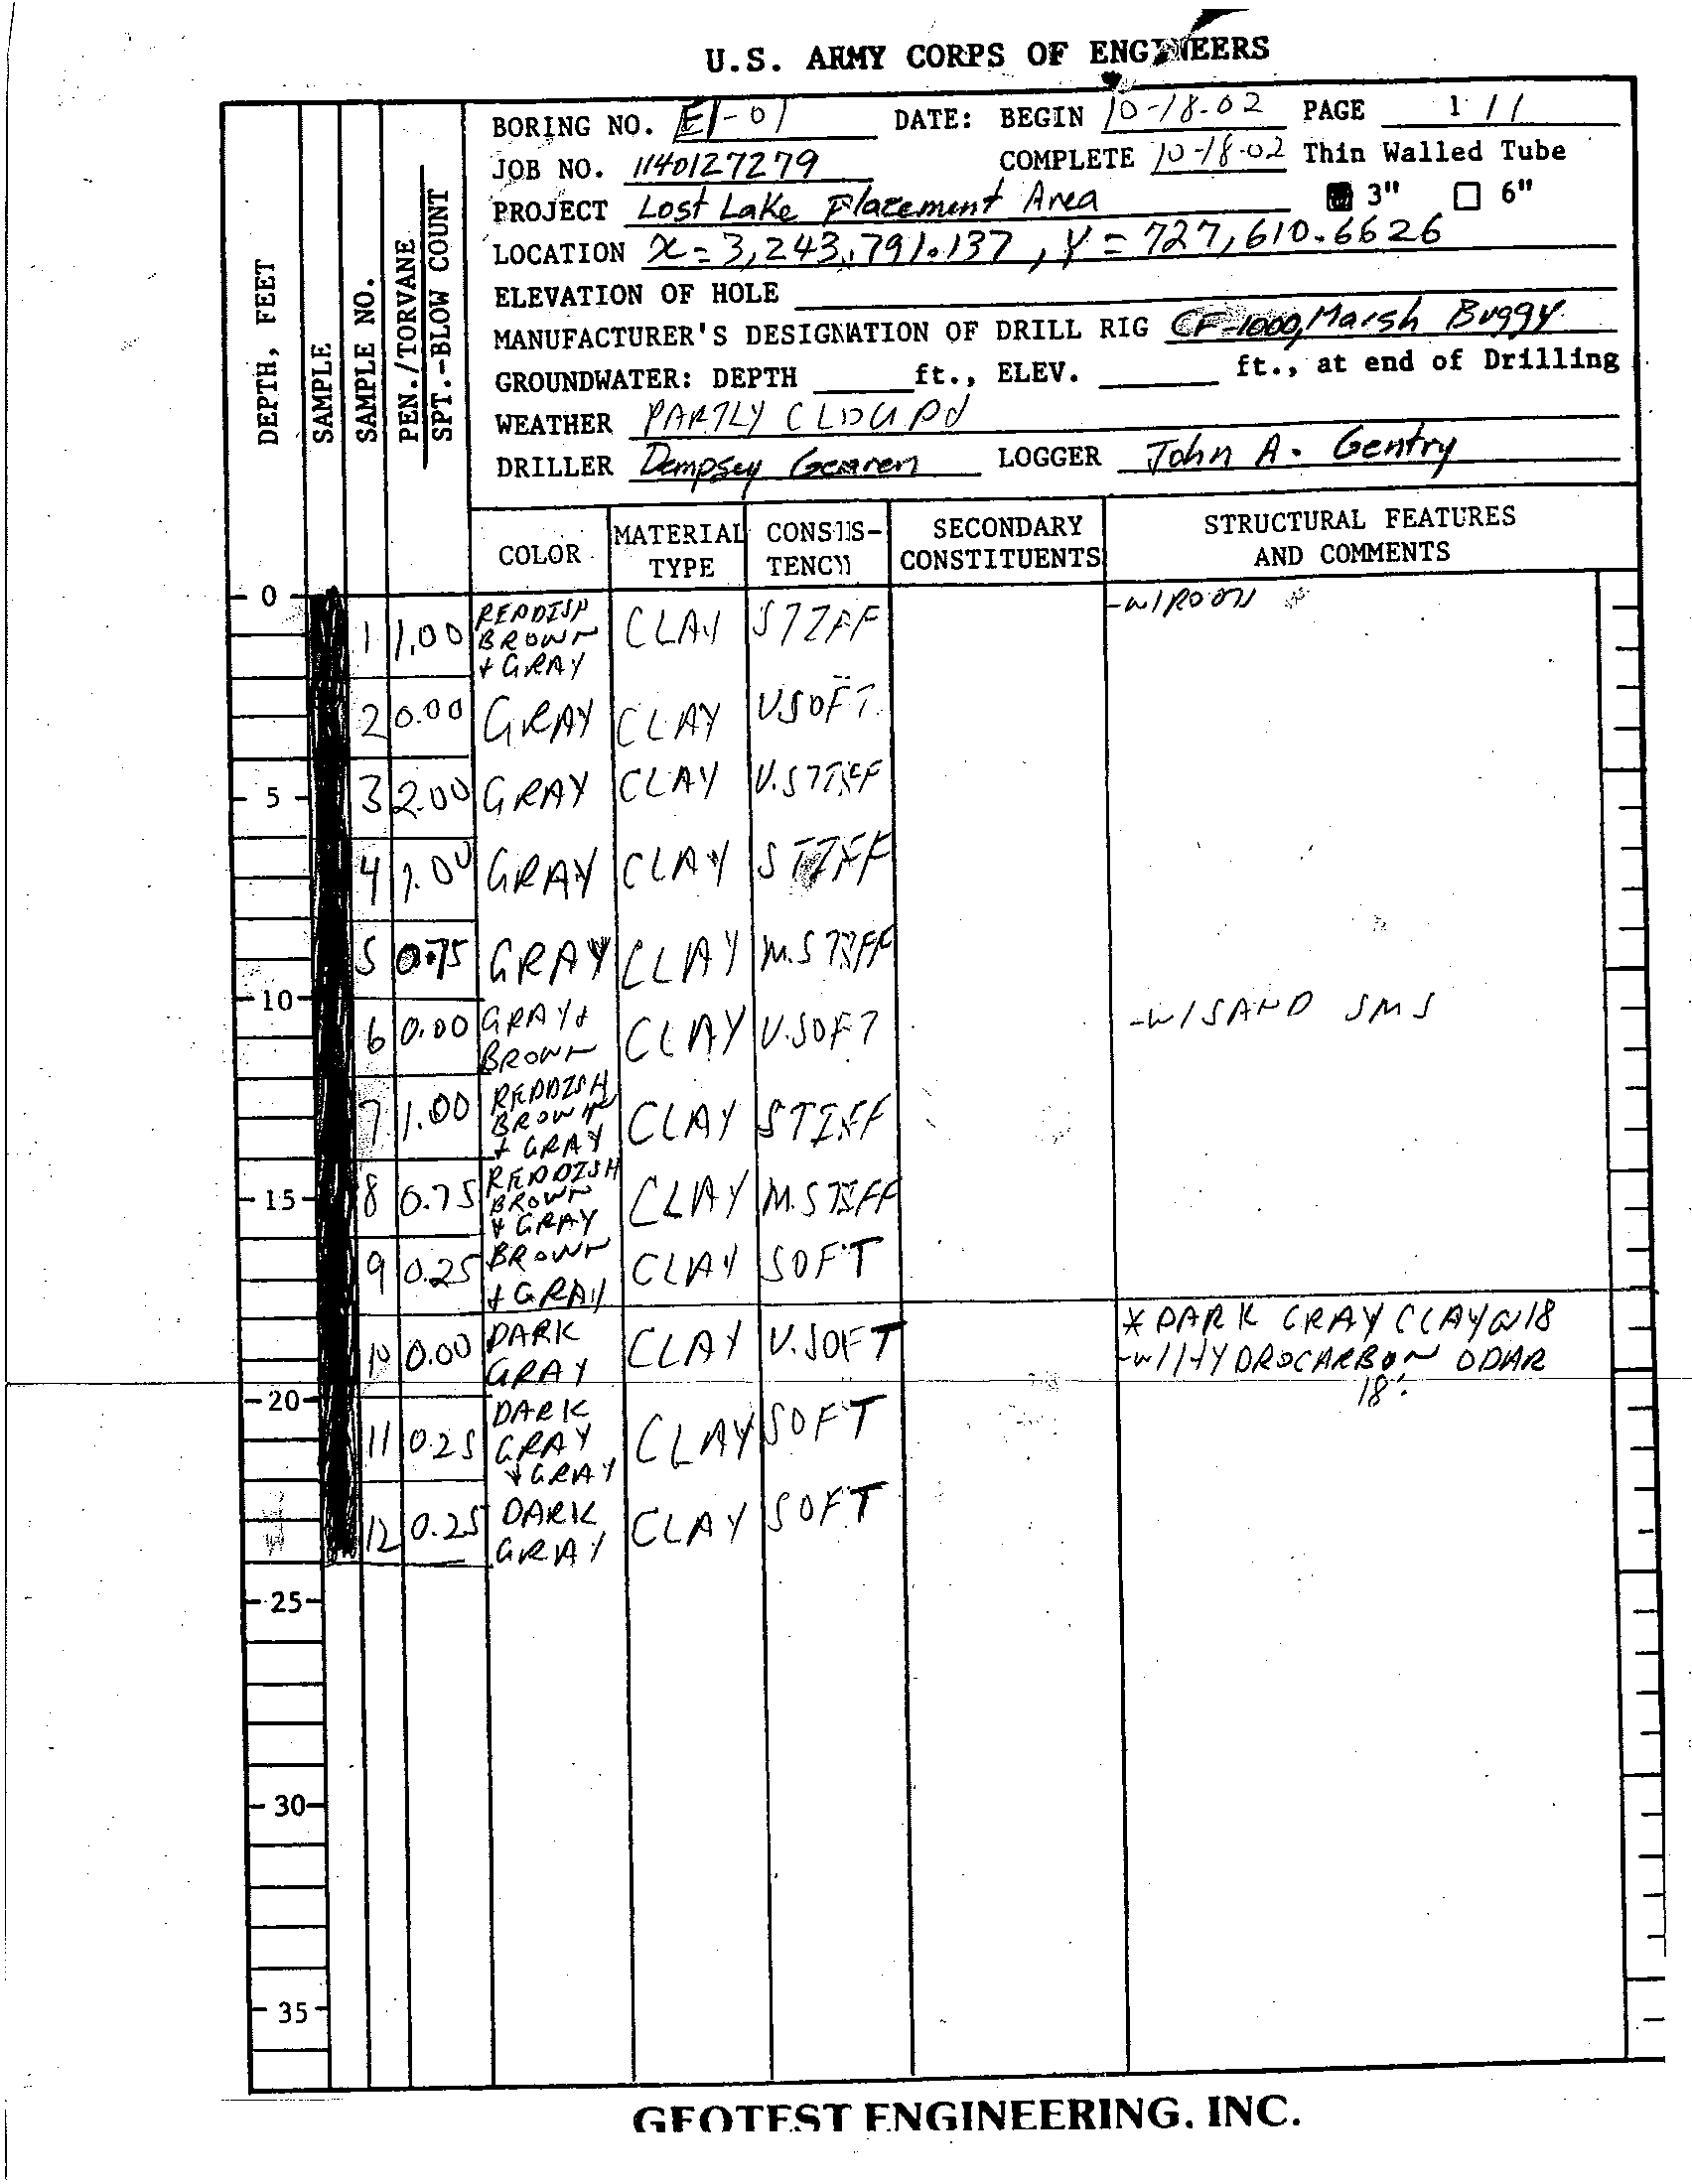 U.S. ARMY CORPS OF ENGINEERS
BORING NO. E1-01 DATE: BEGIN 10-18-02 PAGE 1 / 1
JOB NO. 1140127279 COMPLETE 10-18-02 Thin Walled Tube
PROJECT Lost Lake Placement Area 3" 6"
LOCATION X=3,243,791.137, Y=727,610.6626
ELEVATION OF HOLE
MANUFACTURER'S DESIGNATION OF DRILL RIG CF-1000, Marsh Buggy
GROUNDWATER: DEPTH ft., ELEV. ft., at end of Drilling
WEATHER PARTLY
DRILLER Dempsey LOGGER John A. Gentry
DEPTH, FEET
SAMPLE
SAMPLE NO.
PEN./TORVANE
SPT.-BLOW COUNT
COLOR MATERIAL TYPE CONSIS-TENCY SECONDARY CONSTITUENTS STRUCTURAL FEATURES AND COMMENTS
0
1 1.00 REDDISH BROWN + GRAY CLAY STIFF -W/ROOTS
2 0.00 GRAY CLAY V SOFT
3 2.00 GRAY CLAY V.STIFF
5
4 1.00 GRAY CLAY STIFF
5 0.75 GRAY CLAY M.STIFF
10
6 0.00 GRAY + BROWN CLAY V.SOFT -W/SAND SMS
7 1.00 REDDISH BROWN + GRAY CLAY STIFF
8 0.75 REDDISH BROWN + GRAY CLAY M.STIFF
15
9 0.25 BROWN + GRAY CLAY SOFT
10 0.00 DARK GRAY CLAY V.SOFT * DARK GRAY CLAY @ 18
-W/HYDROCARBON ODAR
18'
20
11 0.25 DARK GRAY + GRAY CLAY SOFT
12 0.25 DARK GRAY CLAY SOFT
25
30
35
GEOTEST ENGINEERING, INC.